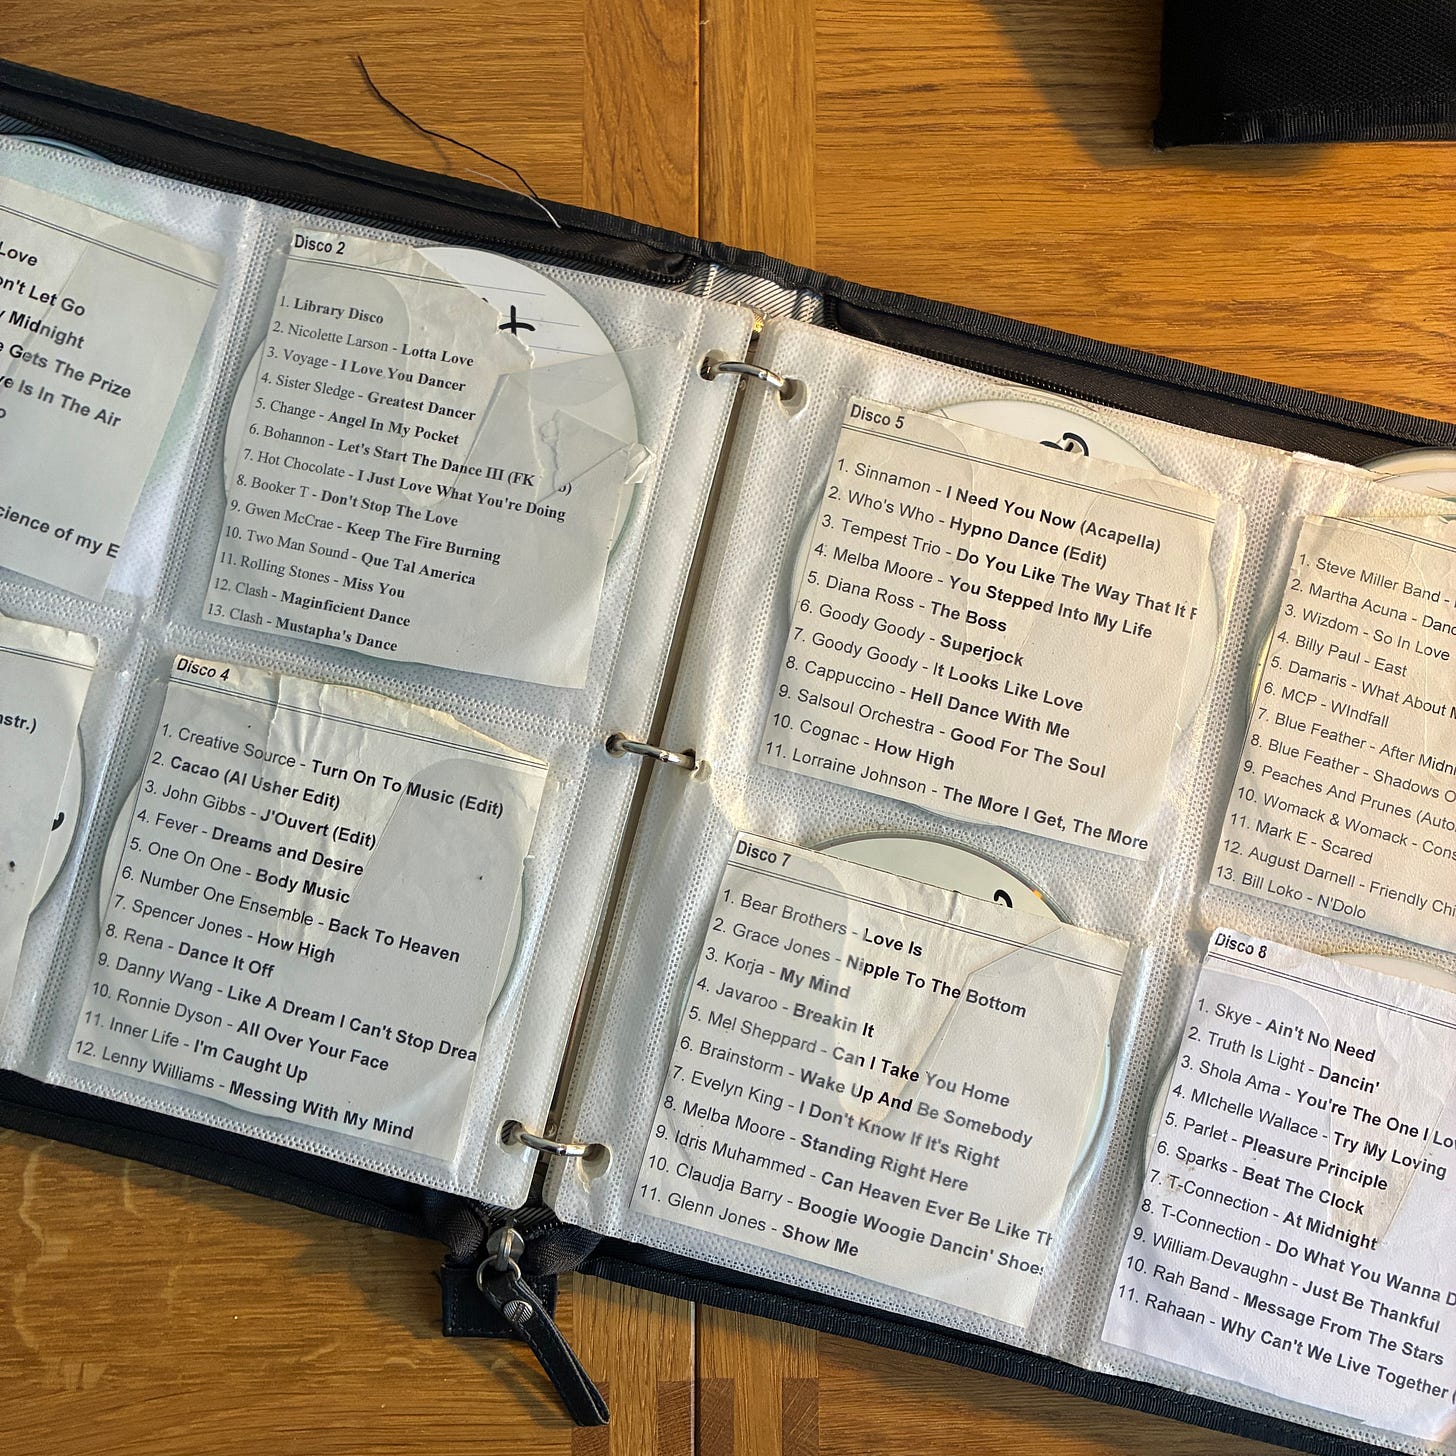 Love
on't Let Go
y Midnight
e Gets The Prize
ve Is In The Air
o
cience of my E
nstr.)
Disco 2
1. Library Disco
2. Nicolette Larson - Lotta Love
3. Voyage - I Love You Dancer
4. Sister Sledge - Greatest Dancer
5. Change - Angel In My Pocket
6. Bohannon - Let's Start The Dance III (FK
7. Hot Chocolate - I Just Love What You're Doing
8. Booker T - Don't Stop The Love
9. Gwen McCrae - Keep The Fire Burning
10. Two Man Sound - Que Tal America
11. Rolling Stones - Miss You
12. Clash - Maginficient Dance
13. Clash - Mustapha's Dance
Disco 4
1. Creative Source - Turn On To Music (Edit)
2. Cacao (Al Usher Edit)
3. John Gibbs - J'Ouvert (Edit)
4. Fever - Dreams and Desire
5. One On One - Body Music
6. Number One Ensemble - Back To Heaven
7. Spencer Jones - How High
8. Rena - Dance It Off
9. Danny Wang - Like A Dream I Can't Stop Drea
10. Ronnie Dyson - All Over Your Face
11. Inner Life - I'm Caught Up
12. Lenny Williams - Messing With My Mind
Disco 5
1. Sinnamon - I Need You Now (Acapella)
2. Who's Who - Hypno Dance (Edit)
3. Tempest Trio - Do You Like The Way That It F
4. Melba Moore - You Stepped Into My Life
5. Diana Ross - The Boss
6. Goody Goody - Superjock
7. Goody Goody - It Looks Like Love
8. Cappuccino - Hell Dance With Me
9. Salsoul Orchestra - Good For The Soul
10. Cognac - How High
11. Lorraine Johnson - The More I Get, The More
1. Steve Miller Band -
2. Martha Acuna - Danc
3. Wizdom - So In Love
4. Billy Paul - East
5. Damaris - What About M
6. MCP - WIndfall
7. Blue Feather - After Midni
8. Blue Feather - Shadows O
9. Peaches And Prunes (Auto
10. Womack & Womack - Cons
11. Mark E - Scared
12. August Darnell - Friendly Chi
13. Bill Loko - N'Dolo
Disco 7
1. Bear Brothers - Love Is
2. Grace Jones - Nipple To The Bottom
3. Korja - My Mind
4. Javaroo - Breakin It
5. Mel Sheppard - Can I Take You Home
6. Brainstorm - Wake Up And Be Somebody
7. Evelyn King - I Don't Know If It's Right
8. Melba Moore - Standing Right Here
9. Idris Muhammed - Can Heaven Ever Be Like Th
10. Claudja Barry - Boogie Woogie Dancin' Shoes
11. Glenn Jones - Show Me
Disco 8
1. Skye - Ain't No Need
2. Truth Is Light - Dancin'
3. Shola Ama - You're The One I Lo
4. MIchelle Wallace - Try My Loving
5. Parlet - Pleasure Principle
6. Sparks - Beat The Clock
7. T-Connection - At Midnight
8. T-Connection - Do What You Wanna D
9. William Devaughn - Just Be Thankful
10. Rah Band - Message From The Stars
11. Rahaan - Why Can't We Live Together (